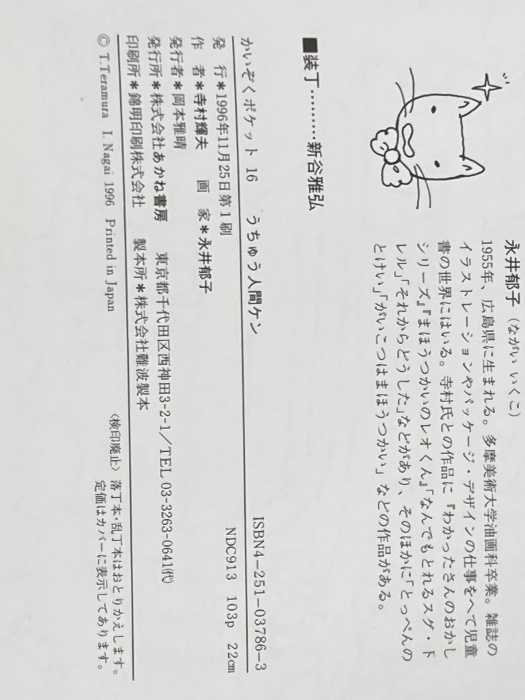 永井郁子（ながい いくこ）
1955年、広島県に生まれる。多摩美術大学油画科卒業。雑誌の
イラストレーションやパッケージ・デザインの仕事をへて児童
書の世界にはいる。寺村氏との作品に『わかったさんのおかし
シリーズ』『まほうつかいのレオくん』「なんでもとれるスゲ・ド
レル」「それからどうした」などがあり、そのほかに「とっぺんの
とけい」「がいこつはまほうつかい」などの作品がある。
■装丁………新谷雅弘
かいぞくポケット 16 うちゅう人間ケン ISBN4-251-03786-3
発 行＊1996年11月25日第1刷 NDC913 103p 22cm
作 者＊寺村輝夫 画 家＊永井郁子
発行者＊岡本雅晴
発行所＊株式会社あかね書房 東京都千代田区西神田3-2-1／TEL 03-3263-0641㈹
印刷所＊錦明印刷株式会社 製本所＊株式会社難波製本
Ⓒ T.Teramura I. Nagai 1996 Printed in Japan
〈検印廃止〉落丁本・乱丁本はおとりかえします。
定価はカバーに表示してあります。